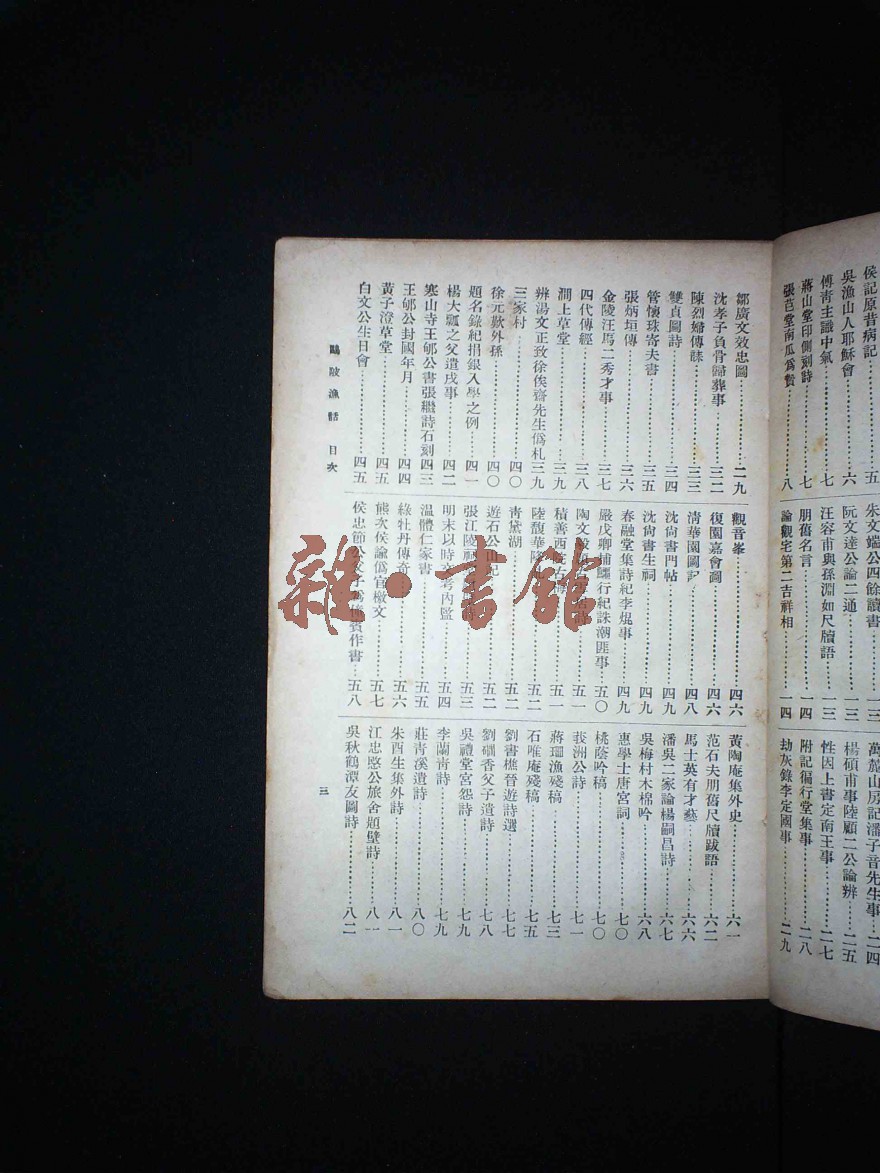 侯記原昔病記⋯⋯五
吳漁山人耶穌會⋯⋯六
傅青主識中氣⋯⋯七
蔣山堂印側刻詩⋯⋯七
張芑堂南瓜爲贄⋯⋯八
朱文端公四餘讀書⋯⋯一三
阮文達公論二通⋯⋯一三
汪容甫與孫淵如尺牘語⋯⋯一三
朋舊名言⋯⋯一四
論觀宅第二吉祥相⋯⋯一四
萬麓山房記潘子音先生事⋯⋯二四
楊碩甫事陸顧二公論辨⋯⋯二五
性因上書定南王事⋯⋯二七
附記徧行堂集事⋯⋯二八
劫灰錄李定國事⋯⋯二九
鄒廣文效忠圖⋯⋯二九
沈孝子負骨歸葬事⋯⋯三二
陳烈婦傳誄⋯⋯三三
雙貞圖詩⋯⋯三四
管懷珠寄夫書⋯⋯三五
張炳垣傳⋯⋯三六
金陵汪馬二秀才事⋯⋯三七
四代傳經⋯⋯三八
澗上草堂⋯⋯三九
辨湯文正致徐俟齋先生僞札⋯⋯三九
三家村⋯⋯四〇
徐元歎外孫⋯⋯四〇
題名錄紀捐銀入學之例⋯⋯四一
楊大瓢之父遣戍事⋯⋯四二
寒山寺王郇公書張繼詩石刻⋯⋯四三
王郇公封國年月⋯⋯四四
黃子澄草堂⋯⋯四五
白文公生日會⋯⋯四五
觀音峯⋯⋯四六
復園嘉會圖⋯⋯四六
清華園圖記⋯⋯四八
沈尙書門帖⋯⋯四九
沈尙書生祠⋯⋯四九
春融堂集詩紀李焜事⋯⋯四九
嚴戊卿捕鱷行紀誅潮匪事⋯⋯五〇
陶文毅⋯⋯五一
積善西院⋯⋯五一
陸馥華⋯⋯五二
青黛湖⋯⋯五二
遊石公山記⋯⋯五二
張江陵⋯⋯五三
明末以時文考內監⋯⋯五四
温體仁家書⋯⋯五五
綠牡丹傳奇⋯⋯五六
熊次侯諭僞官檄文⋯⋯五七
侯忠節公父子爲傭賓作書⋯⋯五八
黃陶庵集外史⋯⋯六一
范石夫朋舊尺牘跋語⋯⋯六二
馬士英有才藝⋯⋯六六
潘吳二家論楊嗣昌詩⋯⋯六七
吳梅村木棉吟⋯⋯六八
惠學士唐宮詞⋯⋯七〇
桃蔭吟稿⋯⋯七〇
莪洲公詩⋯⋯七一
蔣珊漁殘稿⋯⋯七三
石唯庵殘稿⋯⋯七五
劉書樵晉遊詩選⋯⋯七七
劉硼香父子遺詩⋯⋯七八
吳禮堂宮怨詩⋯⋯七九
李蘭靑詩⋯⋯七九
莊青溪遺詩⋯⋯八〇
朱酉生集外詩⋯⋯八一
江忠愍公旅舍題壁詩⋯⋯八一
吳秋鶴潭友圖詩⋯⋯八二
鷗陂漁話 目次
三
雜·書館